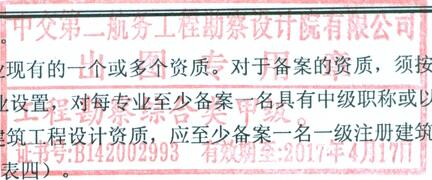 。
中交第二航务工程勘察设计院有限公司
出图专用章
业现有的一个或多个资质。对于备案的资质，须按
业设置，对每专业至少备案一名具有中级职称或以
工程勘察综合类甲级。
建筑工程设计资质，应至少备案一名一级注册建筑
证书号:B142002993 有效期至:2017年4月17日
表四）。